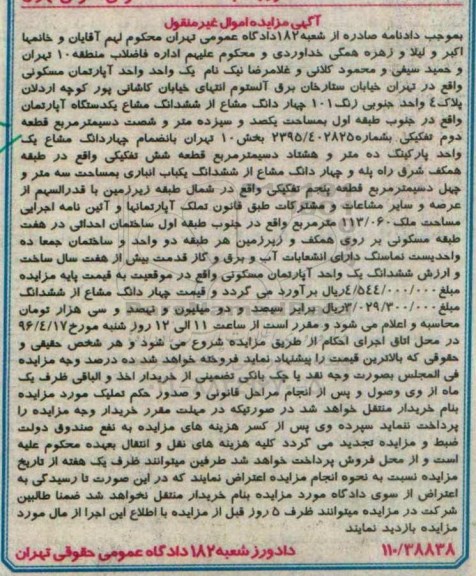 آگهی مزایده اموال غیرمنقول
بموجب دادنامه صادره از شعبه۱۸۲دادگاه عمومی تهران محکوم لهم آقایان و خانمها
اکبر و لیلا و زهره همگی خداوردی و محکوم علیهم اداره فاضلاب منطقه۱۰ تهران
و حمید سیفی و محمود کلانی و غلامرضا نیک نام یک واحد واحد آپارتمان مسکونی
واقع در تهران خیابان ستارخان برق آلستوم انتهای خیابان کاشانی پور کوچه اردلان
پلاک۴ واحد جنوبی زنگ۱۰۱ چهار دانگ مشاع از ششدانگ مشاع یکدستگاه آپارتمان
واقع در جنوب طبقه اول بمساحت یکصد و سیزده متر و شصت دسیمترمربع قطعه
دوم تفکیکی بشماره۲۳۹۵/۴۰۲۸۲۵ بخش۱۰ تهران بانضمام چهاردانگ مشاع یک
واحد پارکینگ ده متر و هشتاد دسیمترمربع قطعه شش تفکیکی واقع در طبقه
همکف شرق راه پله و چهار دانگ مشاع از ششدانگ یکباب انباری بمساحت سه متر و
چهل دسیمترمربع قطعه پنجم تفکیکی واقع در شمال طبقه زیرزمین با قدرالسهم از
عرصه و سایر مشاعات و مشترکات طبق قانون تملک آپارتمانها و آئین نامه اجرایی
مساحت ملک۱۱۳/۰۶۰ مترمربع واقع در جنوب طبقه اول ساختمان احداثی در هفت
طبقه مسکونی بر روی همکف و زیرزمین هر طبقه دو واحد و ساختمان جمعا ده
واحدیست نماسنگ دارای انشعابات آب و برق و گاز قدمت بیش از هفت سال ساخت
و ارزش ششدانگ یک واحد آپارتمان مسکونی واقع در موقعیت به قیمت پایه مزایده
مبلغ۴/۵۴۴/۰۰۰/۰۰۰ریال برآورد می گردد و قیمت چهار دانگ مشاع از ششدانگ
مبلغ۳/۰۲۹/۳۰۰/۰۰۰ریال برابر سیصد و دو میلیون و نهصد و سی هزار تومان
محاسبه و اعلام می شود و مقرر است از ساعت ۱۱ الی ۱۲ روز شنبه مورخ۹۶/۴/۱۷
در محل اتاق اجرای احکام از طریق مزایده شروع می شود و هر شخص حقیقی و
حقوقی که بالاترین قیمت را پیشنهاد نماید فروخته خواهد شد ده درصد وجه مزایده
فی المجلس بصورت وجه نقد یا چک بانکی تضمینی از خریدار اخذ و الباقی ظرف یک
ماه از وی وصول و پس از انجام مراحل قانونی و صدور حکم تملیک مورد مزایده
بنام خریدار منتقل خواهد شد در صورتیکه در مهلت مقرر خریدار وجه مزایده را
پرداخت ننماید سپرده وی پس از کسر هزینه های مزایده به نفع صندوق دولت
ضبط و مزایده تجدید می گردد کلیه هزینه های نقل و انتقال بعهده محکوم علیه
است و از محل فروش پرداخت خواهد شد طرفین میتوانند ظرف یک هفته از تاریخ
مزایده نسبت به نحوه انجام مزایده اعتراض نمایند که در این صورت تا رسیدگی به
اعتراض از سوی دادگاه مورد مزایده بنام خریدار منتقل نخواهد شد ضمنا طالبین
شرکت در مزایده میتوانند ظرف ۵ روز قبل از مزایده با اطلاع این اجرا از مال مورد
مزایده بازدید نمایند
۱۱۰/۳۸۸۳۸ دادورز شعبه۱۸۲ دادگاه عمومی حقوقی تهران